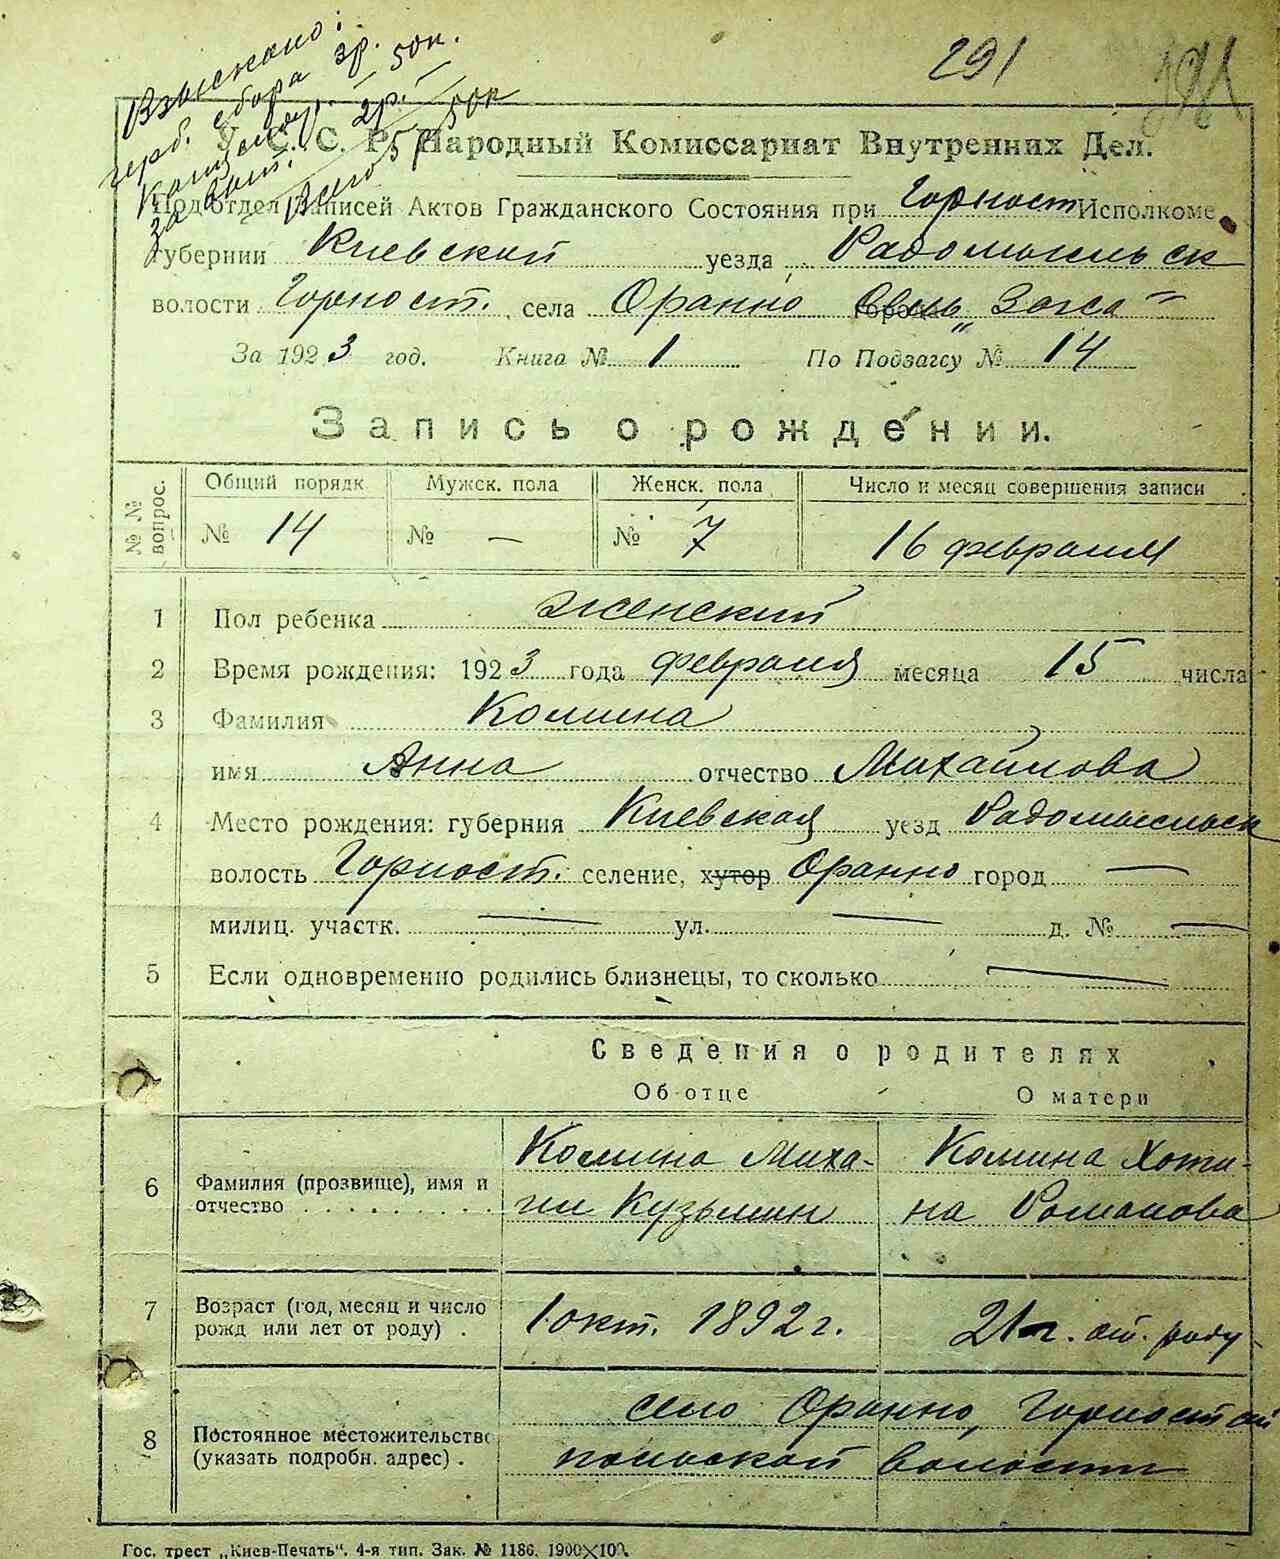 291
Взыскано:
герб. сбора 3р. 50к.
Канцеляр. 2р. —
за бланк.
Всего 5р 50к
У. С. С. Р. Народный Комиссариат Внутренних Дел.
Под'отдел Записей Актов Гражданского Состояния при Горност Исполкоме
губернии Киевской уезда Радомысльск
волости Горност. села Оранно „Загса"
За 1923 год. Книга № 1 По Подзагсу № 14
Запись о рождении.
№ № вопрос. Общий порядк. Мужск. пола Женск. пола Число и месяц совершения записи
№ 14 № — № 7 16 февраля
1 Пол ребенка женский
2 Время рождения: 1923 года февраля месяца 15 числа
3 Фамилия Комина
имя Анна отчество Михайлова
4 Место рождения: губерния Киевская уезд Радомысльск
волость Горност. селение, хутор Оранно город —
милиц. участк. — ул. — д. № —
5 Если одновременно родились близнецы, то сколько —
Сведения о родителях
Об отце О матери
6 Фамилия (прозвище), имя и отчество Комина Миха- Комина Хоти-
ил Кузьмин на Романова
7 Возраст (год, месяц и число рожд или лет от роду) . 1 окт. 1892 г. 21 г. от. роду
8 Постоянное местожительство (указать подробн. адрес) . село Оранно, Горностай
польской волости
Гос. трест „Киев-Печать". 4-я тип. Зак. № 1186. 1900×100.